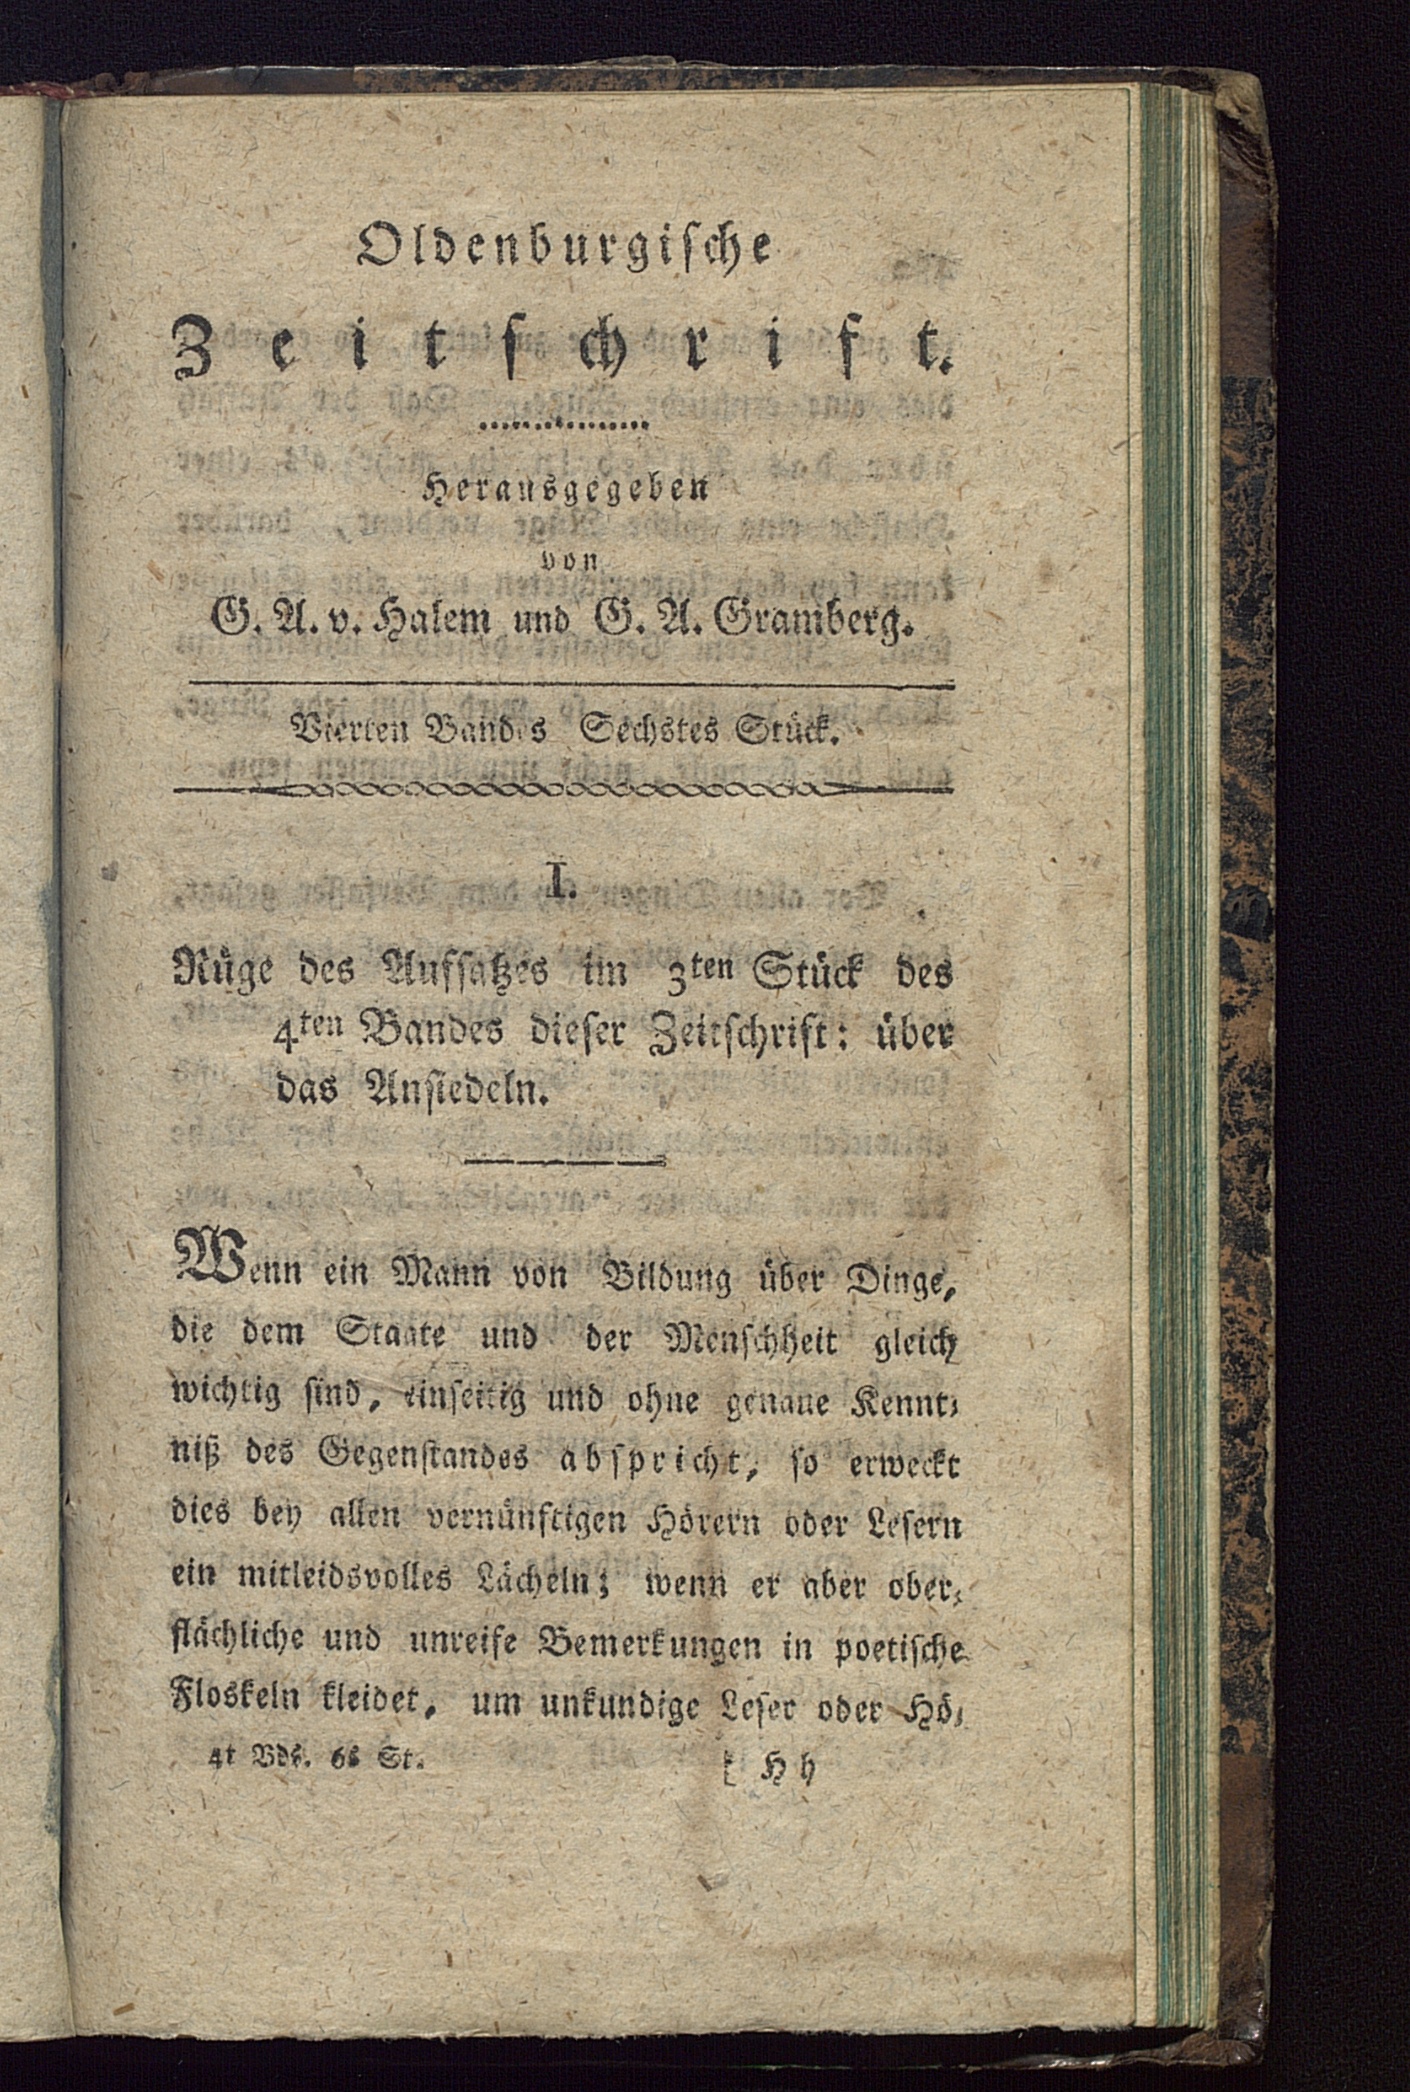 Oldenburgische
Zeitschrift.
Herausgegeben
von
G. A. v. Halem und G. A. Gramberg.
Vierten Bandes Sechstes Stück.
I.
Rüge des Aufsatzes im 3ten Stück des
4ten Bandes dieser Zeitschrift: über
das Ansiedeln.
Wenn ein Mann von Bildung über Dinge,
die dem Staate und der Menschheit gleich
wichtig sind, einseitig und ohne genaue Kennt-
niß des Gegenstandes abspricht, so erweckt
dies bey allen vernünftigen Hörern oder Lesern
ein mitleidsvolles Lächeln; wenn er aber ober-
flächliche und unreife Bemerkungen in poetische
Floskeln kleidet, um unkundige Leser oder Hö-
4t Bds. 6s St. Hh